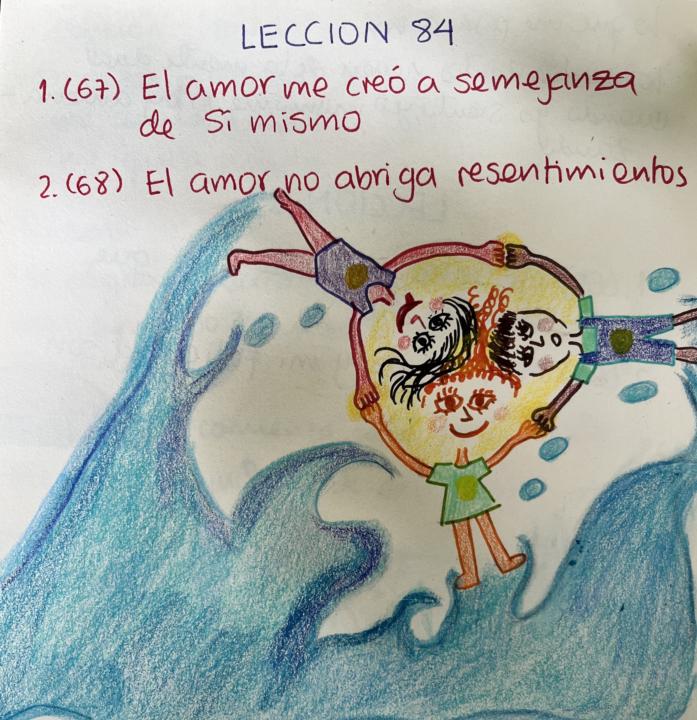 LECCION 84
1. (67) El amor me creó a semejanza
de Si mismo
2. (68) El amor no abriga resentimientos